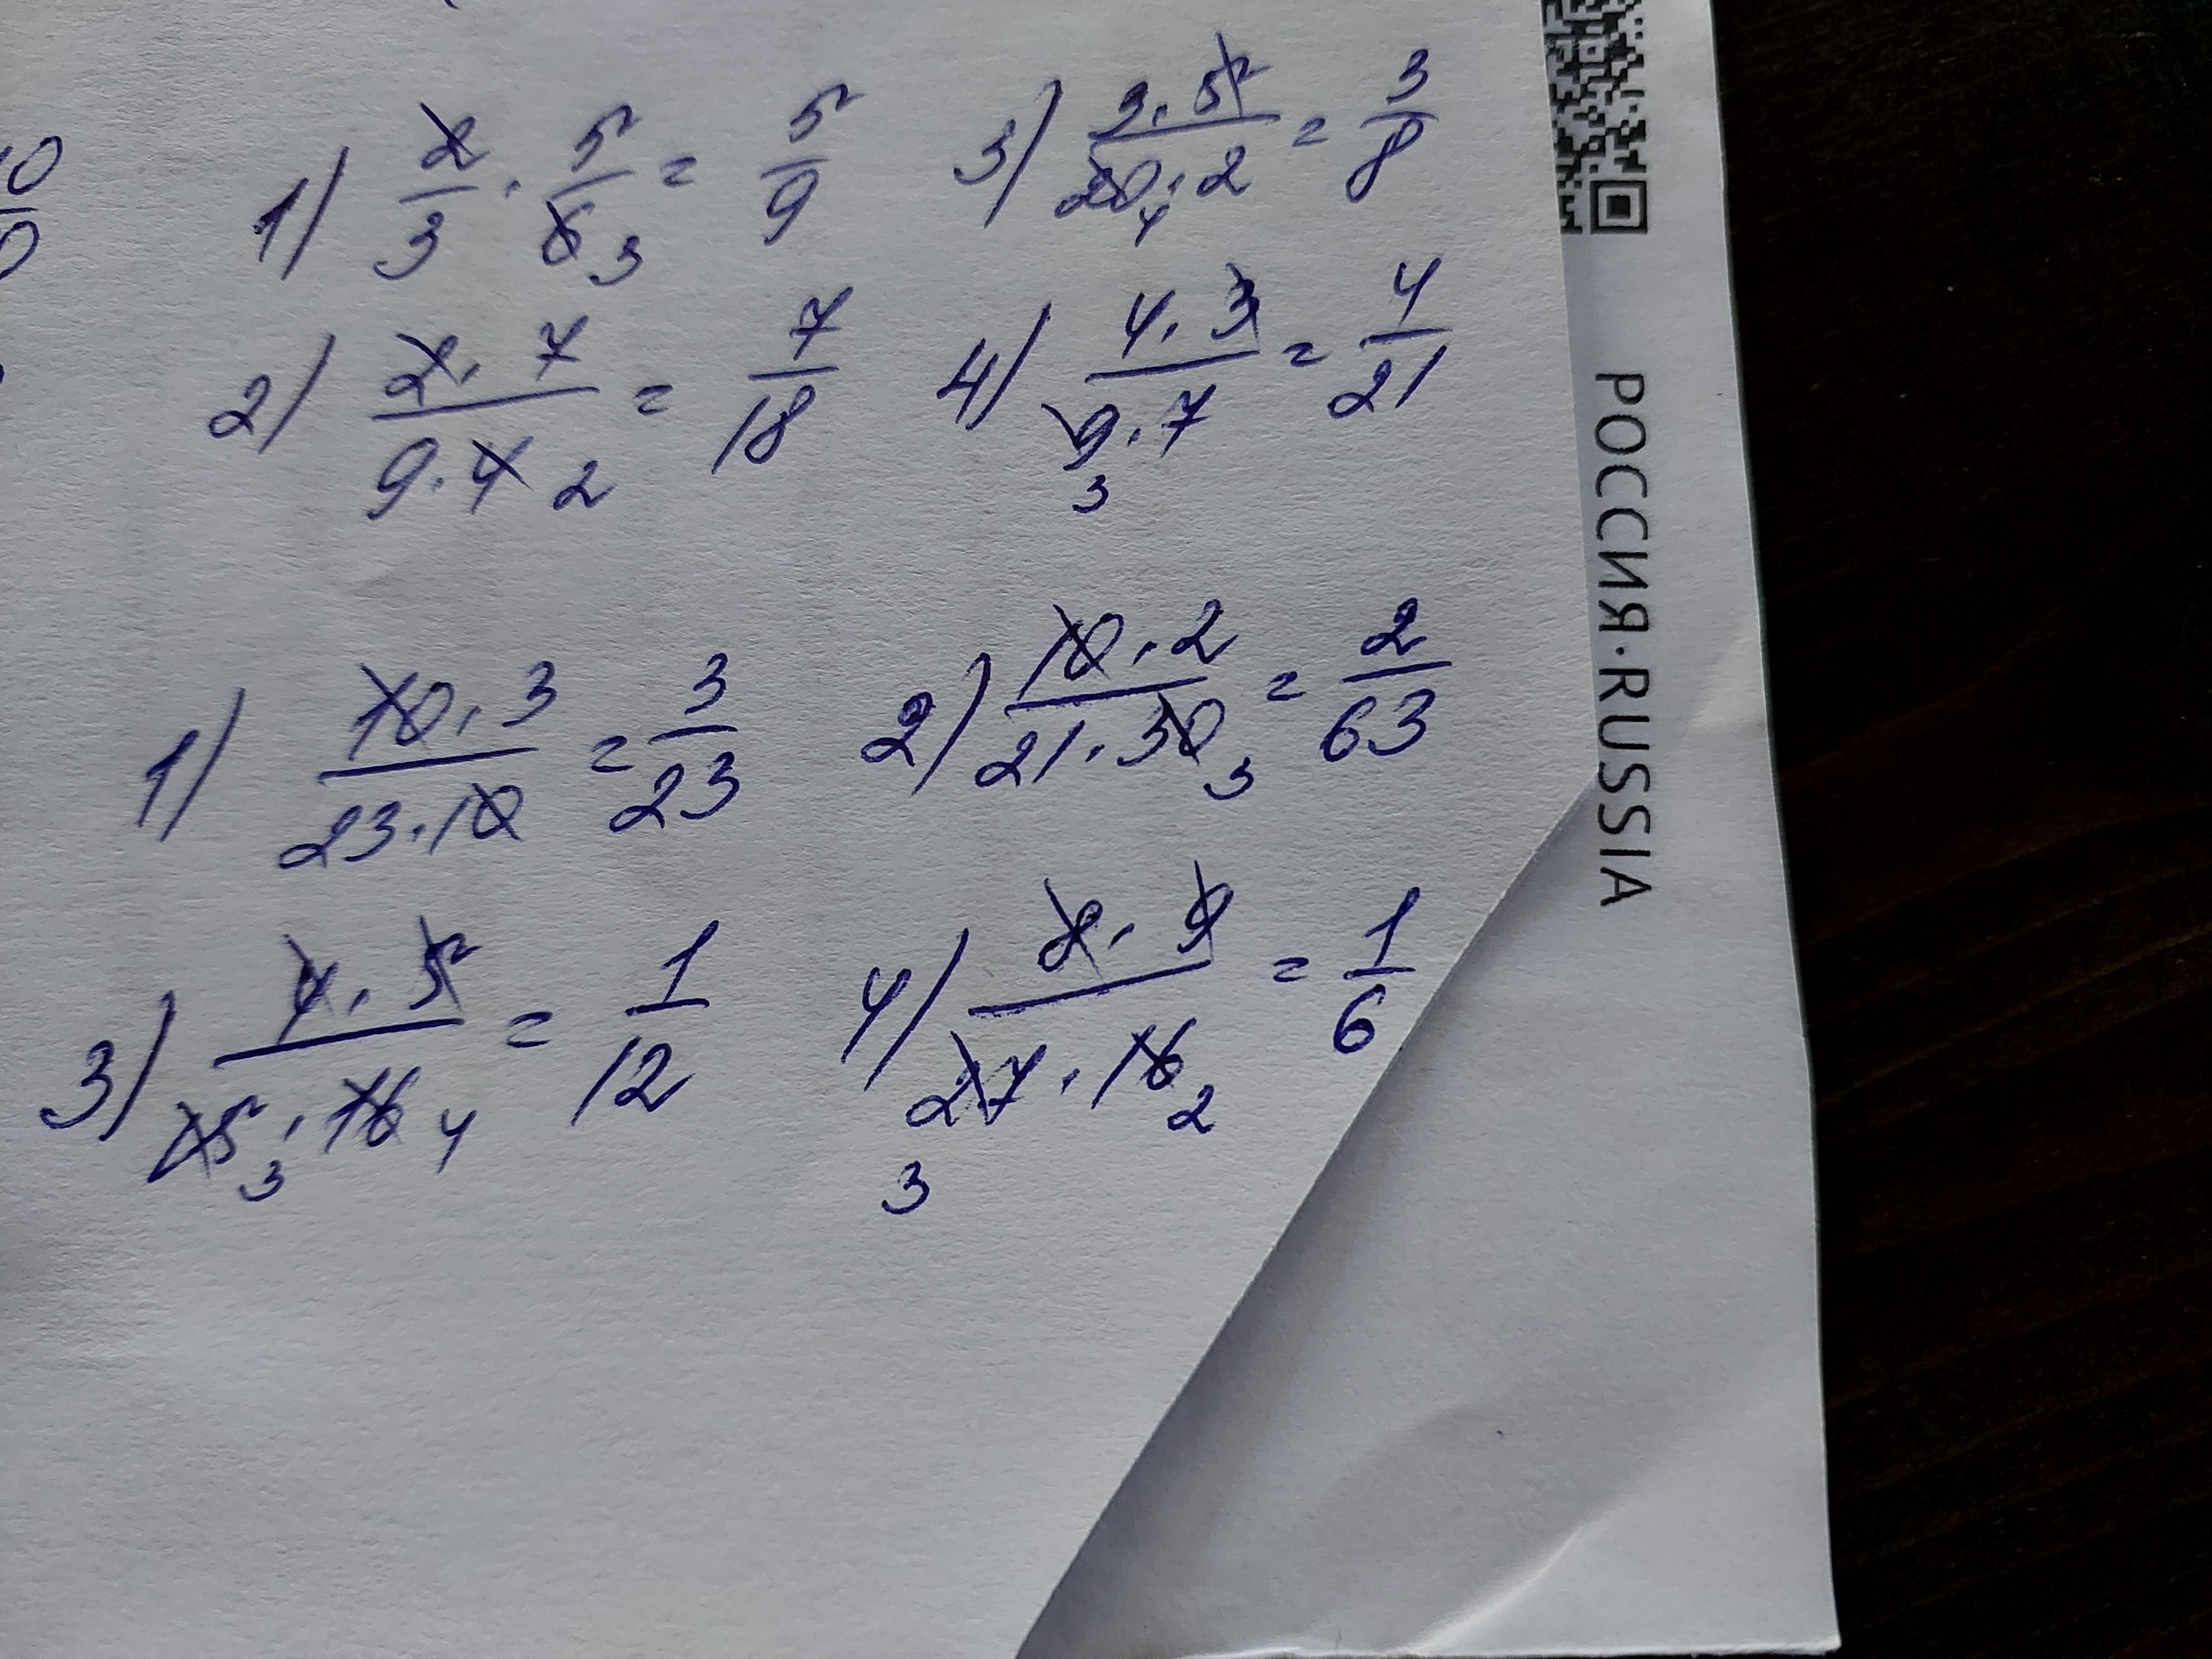 1) 2/3 · 5/6 3 = 5/9 3) 3·5/20 4·2 = 3/8
2) 2·7/9·4 2 = 7/18 4) 4·3/9 3·7 = 4/21
1) 10·3/23·10 = 3/23 2) 10·2/21·30 3 = 2/63
3) 4·5/15 3·16 4 = 1/12 4) 8·9/27 3·16 2 = 1/6
РОССИЯ·RUSSIA